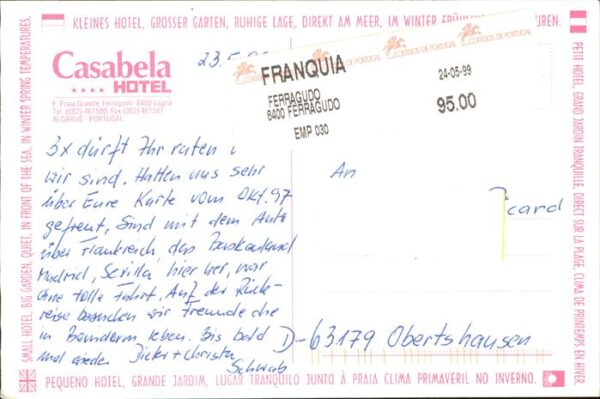 KLEINES HOTEL, GROSSER GARTEN, RUHIGE LAGE, DIREKT AM MEER, IM WINTER
CORREIOS DE PORTUGAL
Casabela
★★★★ HOTEL
P. Praia Grande, Ferragudo, 8400 Lagoa
Tel. (082) 461580, Fax (082) 461581
ALGARVE - PORTUGAL
23.5.
FRANQUIA
24-05-99
FERRAGUDO
8400 FERRAGUDO
95.00
EMP 030
3x dürft Ihr raten
wir sind. Hatten uns sehr
über Eure Karte vom Okt. 97
gefreut, Sind mit dem Auto
über Frankreich, das Baskenland
Madrid, Sevilla hier her, war
eine tolle Fahrt. Auf der Rück-
reise besuchen wir Freunde die
in Benidorm leben. Bis bald
mal wieder Dieter + Christa
Schwab
An
Icard
D-63179 Obertshausen
SMALL HOTEL, BIG GARDEN, QUIET, IN FRONT OF THE SEA, IN WINTER SPRING TEMPERATURES.
PETIT HOTEL, GRAND JARDIN TRANQUILLE, DIRECT SUR LA PLAGE, CLIMA DE PRINTEMPS EN HIVER.
PEQUENO HOTEL, GRANDE JARDIM, LUGAR TRANQUILO JUNTO À PRAIA CLIMA PRIMAVERIL NO INVERNO.